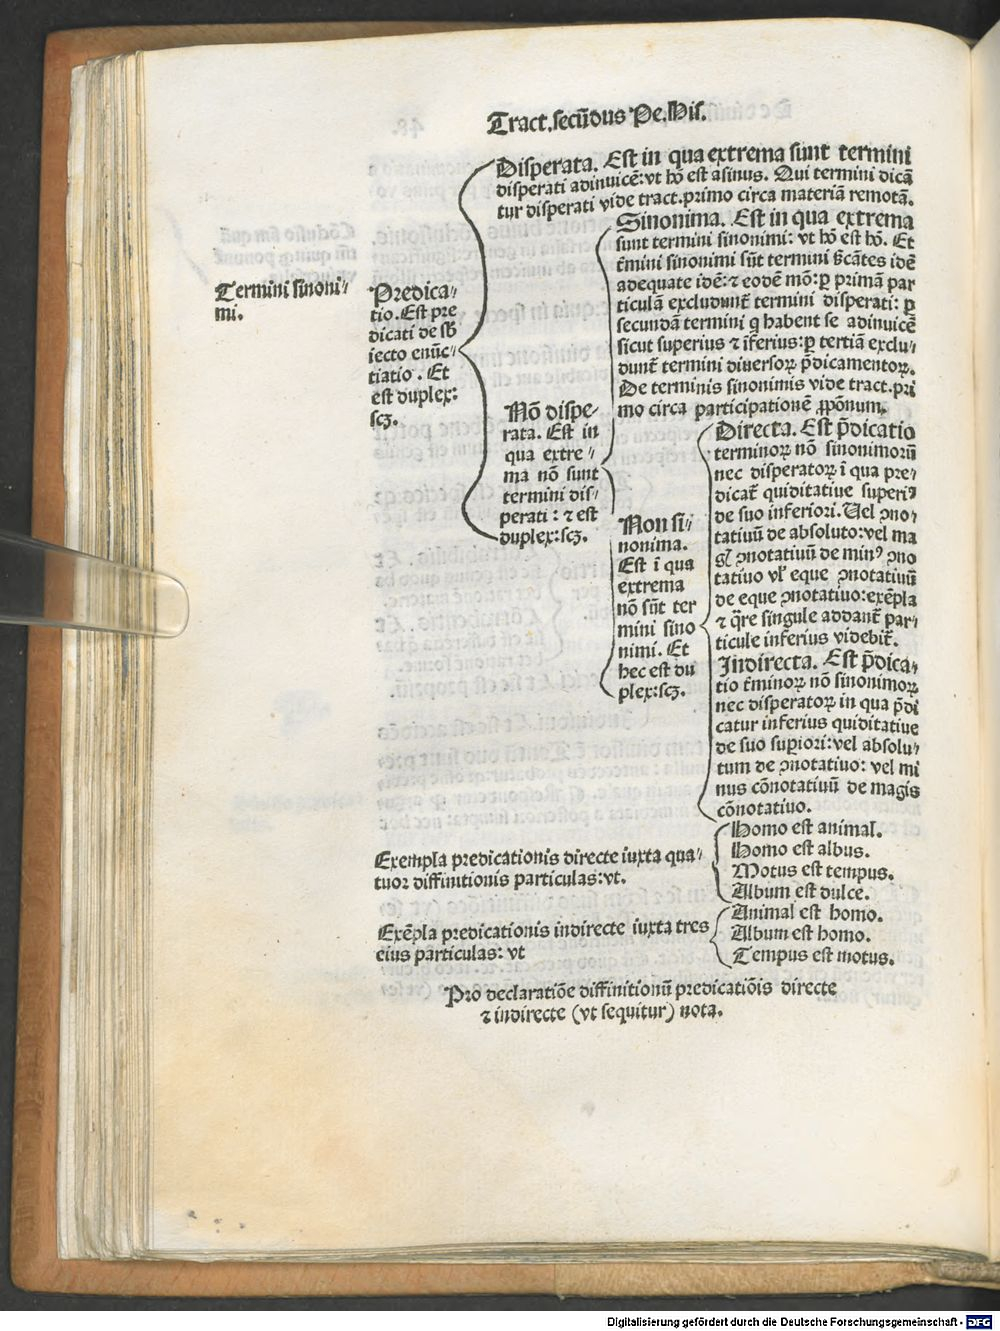 Tract.secūdus Pe.His.
Termini sinoni⸗
mi.
Predica⸗
tio. Est pre
dicati de sb̄
iecto enūc⸗
tiatio. Et
est duplex:
scꝫ.
Disperata. Est in qua extrema sunt termini
disperati adinuicē: vt hō est asinus. Qui termini dicā
tur disperati vide tract.primo circa materiā remotā.
Nō dispe⸗
rata. Est in
qua extre⸗
ma nō sunt
termini dis⸗
perati: ⁊ est
duplex: scꝫ.
Sinonima. Est in qua extrema
sunt termini sinonimi: vt hō est hō. Et
t̄mini sinonimi sūt termini sc̄antes idē
adequate idē: ⁊ eodē mō: ꝑ primā par
ticulā excludunt̄ termini disperati: ꝑ
secundā termini q̄ habent se adinuicē
sicut superius ⁊ īferius: ꝑ tertiā exclu⸗
dunt̄ termini diuersoꝝ p̄dicamentoꝝ.
De terminis sinonimis vide tract.pri
mo circa participationē ꝓpōnum.
Non si⸗
nonima.
Est ī qua
extrema
nō sūt ter
mini sino
nimi. Et
hec est du
plex: scꝫ.
Directa. Est p̄dicatio
terminoꝝ nō sinonimorū
nec disperatoꝝ ī qua pre⸗
dicat̄ quiditatiue superiꝰ
de suo inferiori. Uel ꝯno⸗
tatiuū de absoluto: vel ma
gꝭ ꝯnotatiuū de minꝰ ꝯno
tatiuo vl̓ eque ꝯnotatiuū
de eque ꝯnotatiuo: exēpla
⁊ q̄re singule addant̄ par⸗
ticule inferius videbit̄.
Indirecta. Est p̄dica⸗
tio t̄minoꝝ nō sinonimoꝝ
nec disperatoꝝ in qua p̄di
catur inferius quiditatiue
de suo suꝑiori: vel absolu⸗
tum de ꝯnotatiuo: vel mi
nus cōnotatiuū de magis
cōnotatiuo.
Exempla predicationis directe iuxta qua⸗
tuor diffinitionis particulas: vt.
Homo est animal.
Homo est albus.
Motus est tempus.
Album est dulce.
Exēpla predicationis indirecte iuxta tres
eius particulas: vt
Animal est homo.
Album est homo.
Tempus est motus.
Pro declaratiōe diffinitionū predicatiōis directe
⁊ indirecte (vt sequitur) nota.
Digitalisierung gefördert durch die Deutsche Forschungsgemeinschaft - DFG